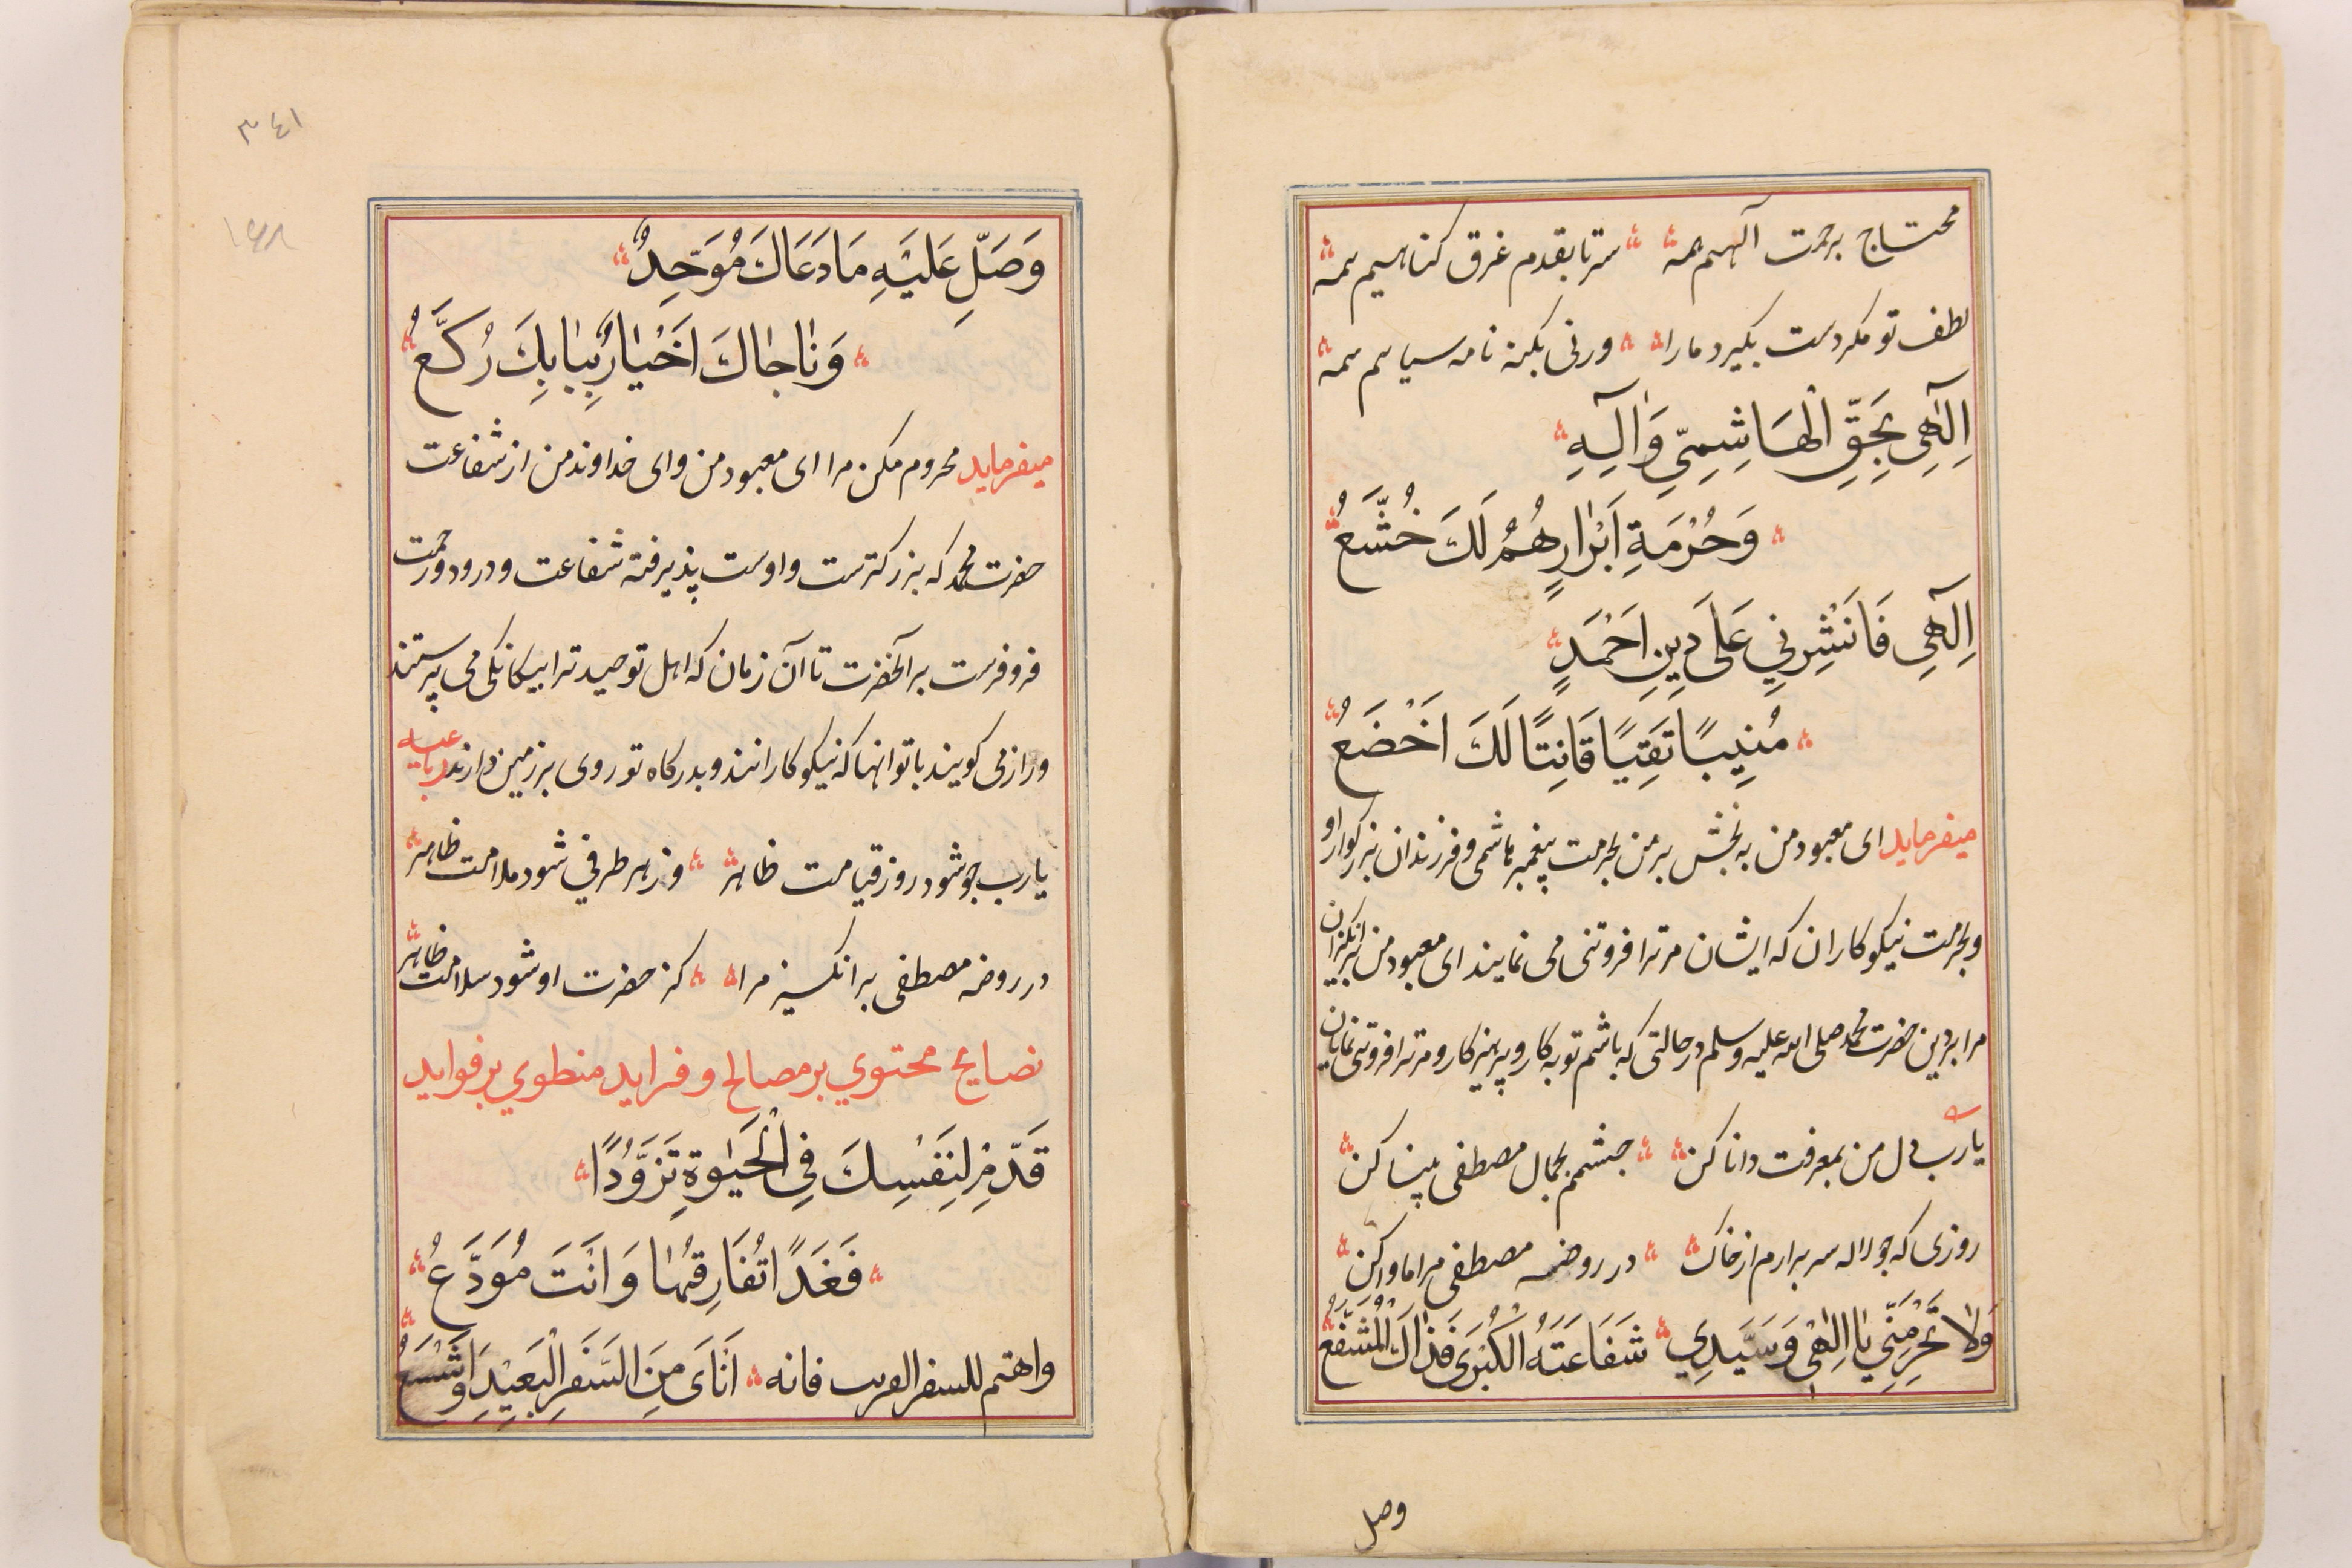 محتاج برحمت آلهیم همه سرتابقدم غرق کناهیم همه
لطف تو مکر دست بکیرد مارا ورنی بکنه نامه سیاهیم همه
اِلٰهِي بِحَقِّ الْهَاشِمِيِّ وَآلِهِ
وَحُرْمَةِ اَبْرَارٍ هُمُ لَكَ خُشَّعُ
اِلٰهِي فَانْشِرْنِي عَلَى دِينِ اَحْمَدٍ
مُنِيبًا تَقِيًا قَانِتًا لَكَ اَخْضَعُ
میفرماید ای معبود من به بخش بر من بحرمت پیغمبر هاشمی و فرزندان بزرکوار او
وبحرمت نیکوکاران که ایشان مر ترا فروتنی می نمایند ای معبود من برانکیزان
مرا بر دین حضرت محمد صلی الله علیه وسلم در حالتی که باشم توبه کار و پرهیزکار و مر ترا فروتنی نمایان
یارب دل من بمعرفت دانا کن چشمم بجمال مصطفی بینا کن
روزی که چو لاله سر برارم از خاک در روضه مصطفی مرا ماوا کن
وَلَا تَحْرِمَنِّي يَا اِلٰهِي وَسَيِّدِي شَفَاعَتَهُ الْكُبْرَى فَذَاكَ الْمُشَفَّعُ
وصل
۳٤۱
وَصَلِّ عَلَيْهِ مَا دَعَاكَ مُوَحِّدٌ
وَنَاجَاكَ اَخْيَارٌ بِبَابِكَ رُكَّعُ
میفرماید محروم مکن مرا ای معبود من وای خداوند من از شفاعت
حضرت محمد که بزرکترست و اوست پذیرفته شفاعت و درود و رحمت
فرو فرست بر آنحضرت تا آن زمان که اهل توحید ترا بیکانکی می پرستند
و راز می کویند با تو انها که نیکوکارانند و بدرکاه تو روی بر زمین دارند رباعیه
یارب چو شود روز قیامت ظاهر وز هر طرفی شود ملامت ظاهر
در روضه مصطفی بر انکیز مرا کز حضرت او شود سلامت ظاهر
نصایح محتوي بر مصالح و فراید منطوي بر فواید
قَدِّمْ لِنَفْسِكَ فِي الْحَيٰوةِ تَزَوُّدًا
فَغَدًا تُفَارِقُهَا وَاَنْتَ مُوَدَّعُ
واهتم للسفر القریب فانه اَنْاَى مِنَ السَّفَرِ الْبَعِيْدِ وَاَشْسَعُ